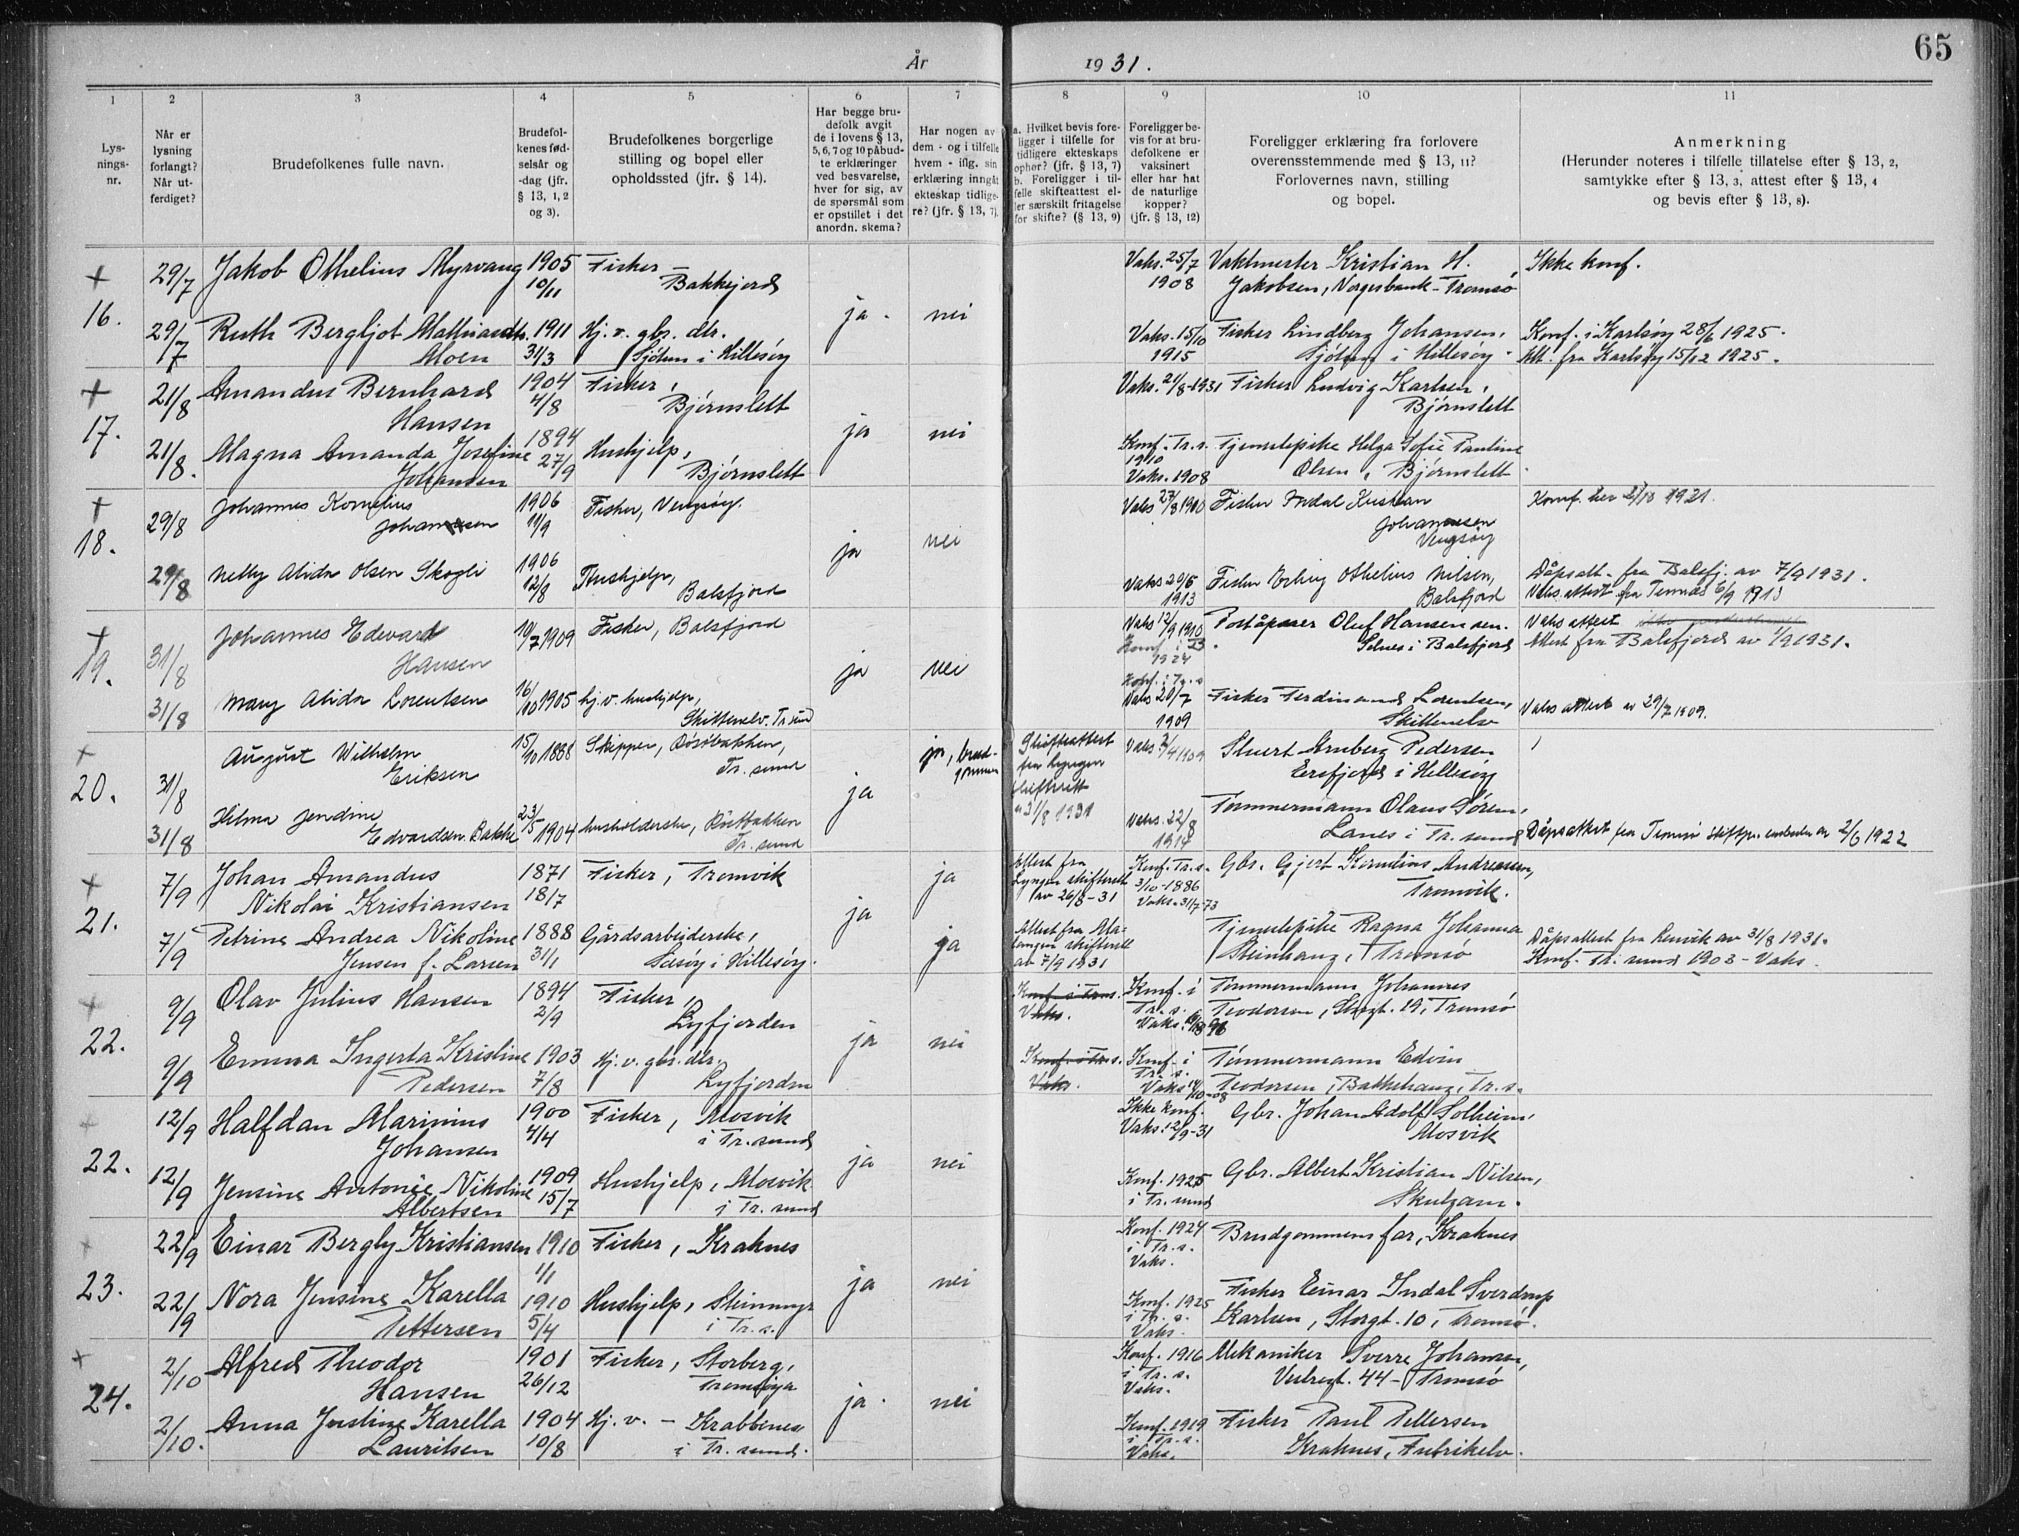 65
År 1931.
1 2 3 4 5 6 7 8 9 10 11
Lys-
nings-
nr.
Når er
lysning
forlangt?
Når ut-
ferdiget?
Brudefolkenes fulle navn.
Brudefol-
kenes fød-
selsår og
-dag (jfr.
§ 13, 1, 2
og 3).
Brudefolkenes borgerlige
stilling og bopel eller
opholdssted (jfr. § 14).
Har begge bru-
defolk avgit
de i lovens § 13,
5, 6, 7 og 10 påbud-
te erklæringer
ved besvarelse,
hver for sig, av
de spørsmål som
er opstillet i det
anordn. skema?
Har nogen av
dem - og i tilfelle
hvem - iflg. sin
erklæring inngått
ekteskap tidlige-
re? (jfr. § 13, 7).
a. Hvilket bevis fore-
ligger i tilfelle for
tidligere ekteskaps
ophør? (jfr. § 13, 7)
b. Foreligger i til-
felle skifteattest el-
ler særskilt fritagelse
for skifte? (§ 13, 9)
Foreligger be-
vis for at bru-
defolkene er
vaksinert
eller har hat
de naturlige
kopper?
(jfr. § 13, 12)
Foreligger erklæring fra forlovere
overensstemmende med § 13, 11?
Forlovernes navn, stilling
og bopel.
Anmerkning
(Herunder noteres i tilfelle tillatelse efter § 13, 2,
samtykke efter § 13, 3, attest efter § 13, 4
og bevis efter § 13, 8).
+ 29/7 Jakob Othelius Myrvang 1905 Fisker Vaks. 25/7 Vaktmester Kristian H. Ikke konf.
10/11 Bakkejord 1908 Jakobsen, Norgesbank - Tromsø
16. ja. nei
29/7 Ruth Bergljot Mathiasdtr. 1911 Hj. v. gbr. dtr. Vaks. 15/10 Fisker Lindberg Johansen, Konf. i Karlsøy 28/6 1925.
Moen 31/3 Sjøtun i Hillesøy 1915 Sjøtun i Hillesøy. Utt. fra Karlsøy 15/12 1925.
+ 21/8 Amandus Bernhard 1904 Fisker, Vaks. 21/8-1931 Fisker Ludvig Karlsen,
Hansen 4/8 Bjørnslett Bjørnslett
17. ja nei
21/8. Magna Amanda Josefine 1894 Hushjelp, Konf. Tr. s. Tjenestepike Helga Sofie Pauline
Johansen 27/9 Bjørnslett 1910 Vaks. 1908 Olsen, Bjørnslett.
+ 29/8 Johannes Kornelius 1906 Fisker, Vengsøy. Vaks 27/8 1910 Fisker Indal Kristian Konf. her 1921.
Johannesen 11/9 Johannesen
Vengsøy
18. ja nei
29/8 Nelly Alida Olsen Skogli 1906 Hushjelp, Vaks 20/6 Fisker Erling Othelius Nilsen, Dåpsatt. fra Balsfj. av 7/9 1931.
12/8 Balsfjord 1913 Balsfjord Vaks. attest fra 6/9 1913
+ 31/8 Johannes Edvard 10/7 1909 Fisker, Balsfjord Vaks 12/9 1910 Poståpner Oluf Hansen sen. Vaks attest
Hansen Konf. i 1924 Selnes i Balsfjord Attest fra Balsfjord av 1/9 1931.
19. ja nei
31/8 Mary Alida Lorentsen 16/10 1905 hj. v. hushjelp, Konf. i Tr. s Vaks 20/7 Fisker Ferdinand Lorentsen, Vaks attest av 29/7 1909.
Skittenelv. Tr. sund 1909 Skittenelv
+ 31/8 August Wilhelm 15/10 1888 Skipper, Tr. sund ja, brud- Skifteattest Vaks 1909 Stuert Arnberg Pedersen
Eriksen gommen fra Lyngen Ersfjord i Hillesøy
20. ja skifterett
31/8 Hilma Jendine 23/5 1904 husholderske, av 31/8 1931 Vaks. 22/8 Tømmermann Olaus Søren,
Edvardsen Bakke Tr. sund 1914 Lanes i Tr. sund Dåpsattest fra Tromsø av 2/6 1922
+ 7/9 Johan Amandus 1871 Fisker, Tromvik ja Attest fra Konf. Tr. s. Gbr. Gjert Kornelius Andreassen,
Nikolai Kristiansen 18/7 Lyngen skifterett 3/10-1886 Tromvik.
av 26/8-31 Vaks. 31/7-73
21. ja
7/9 Petrine Andrea Nikoline 1888 Gårdsarbeiderske, ja Attest fra Ma- Tjenestepike Ragna Johanna Dåpsattest fra Lenvik av 31/8 1931.
Jensen f. Larsen 31/1 i Hillesøy. langen skifterett Steinhaug, Tromsø Konf. Tr. sund 1903 - Vaks.
av 7/9 1931
+ 9/9 Olav Julius Hansen 1894 Fisker, Konf. i Tr. s. Konf. i Tømmermann Johannes
2/9 Lyfjorden Vaks. Tr. s. Teodorsen, Storgt. 19, Tromsø
Vaks. 98
22. ja nei
9/9 Emma Ingerta Kristine 1903 Hj. v. gbr. dtr. Konf. i Tr. s. Konf. i Tømmermann Edvin
Pedersen 7/8 Lyfjorden Vaks. Tr. s. Teodorsen, Bakkehaug, Tr. s.
Vaks 08
+ 12/9 Halfdan Marinius 1900 Fisker, Mosvik Ikke konf. Gbr. Johan Adolf Solheim,
Johansen 4/4 i Tr. sund Vaks. 12/9-31 Mosvik
22. ja nei
12/9 Jensine Antonie Nikoline 1909 Hushjelp, Mosvik Konf. 1925 Gbr. Albert Kristian Nilsen,
Albertsen 15/7 i Tr. sund i Tr. sund Skulgam.
+ 22/9 Einar Bergly Kristiansen 1910 Fisker, Kraknes Konf. 1924 Brudgommens far, Kraknes
1/1 i Tr. s.
Vaks.
23. ja nei
22/9 Nora Jensine Karella 1910 Hushjelp, Konf. 1925 Fisker Einar Indal Sverdrup
Pettersen 5/4 i Tr. s. i Tr. s. Karlsen, Storgt. 10, Tromsø.
Vaks.
+ 2/10 Alfred Theodor 1901 Fisker, Storberg, Konf. 1916 Mekaniker Sverre Johansen,
Hansen 26/12 Tromsøya i Tr. s. Vestregt. 44 - Tromsø
Vaks.
24. ja. nei
2/10. Anna Justine Karella 1904 Hj. v. - Krabbenes Konf. 1919 Fisker Paul Pettersen
Lauritsen 10/8 i Tr. sund. i Tr. s. Kraknes,
Vaks.